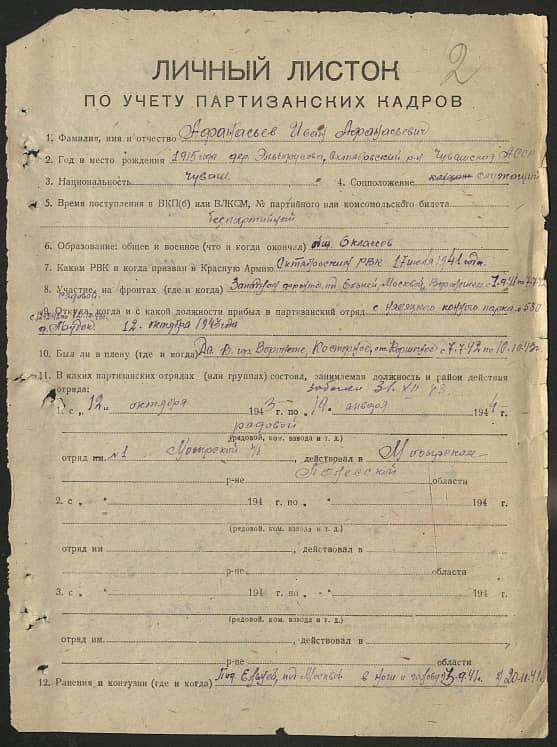 2
ЛИЧНЫЙ ЛИСТОК
ПО УЧЕТУ ПАРТИЗАНСКИХ КАДРОВ
1. Фамилия, имя и отчество Афанасьев Иван Афанасьевич
2. Год и место рождения 1915 года дер. Октябровский р-н Чувашская АССР
3. Национальность чуваш 4. Соцположение служащий
5. Время поступления в ВКП(б) или ВЛКСМ, № партийного или комсомольского билета
беспартийный
6. Образование: общее и военное (что и когда окончил) общ. 6 классов
7. Каким РВК и когда призван в Красную Армию Октябровским РВК 17 июля 1941 года.
8. Участие, на фронтах (где и когда) Западном фронте, под Ельней, Москвой, Воронежем с 7.9.41 по 7.7.42
рядовой
9. Откуда, когда и с какой должности прибыл в партизанский отряд с конного парка № 580
12. октября 1943 года
10. Был ли в плену (где и когда) Да в. гор. Воронеже, Касторное, с 7.7.42 по 10.10.43г.
11. В каких партизанских отрядах (или группах) состоял, занимаемая должность и район действия
отряда: 31. XII 43.
1. с „12 „ октября 1943 г. по „19 „ января 1944 г.
рядовой
(рядовой, ком. взвода и т. д.)
отряд им. №1 Мозырской , действовал в Мозырском
р-не Полесской области
2. с „ „ 194 г. по „ „ 194 г.
(рядовой, ком. взвода и т. д.)
отряд им , действовал в
р-не области
3. с „ „ 194 г. по „ „ 194 г.
(рядовой, ком. взвода и т. д.)
отряд им. , действовал в
р-не области
12. Ранения и контузии (где и когда) Под Ельней, под Москвой в ноги и голову 9.41г. 20.11.41